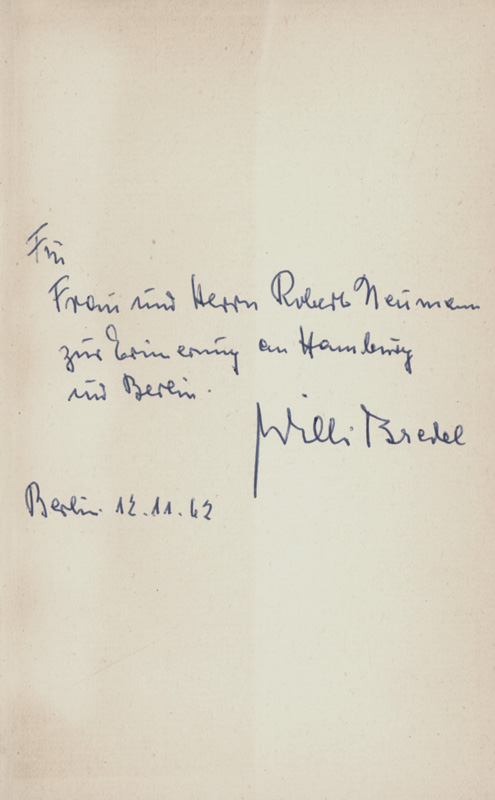 Für
Frau und Herrn Robert Neumann
zur Erinnerung an Hamburg
und Berlin.
Willi Bredel
Berlin 12.11.62